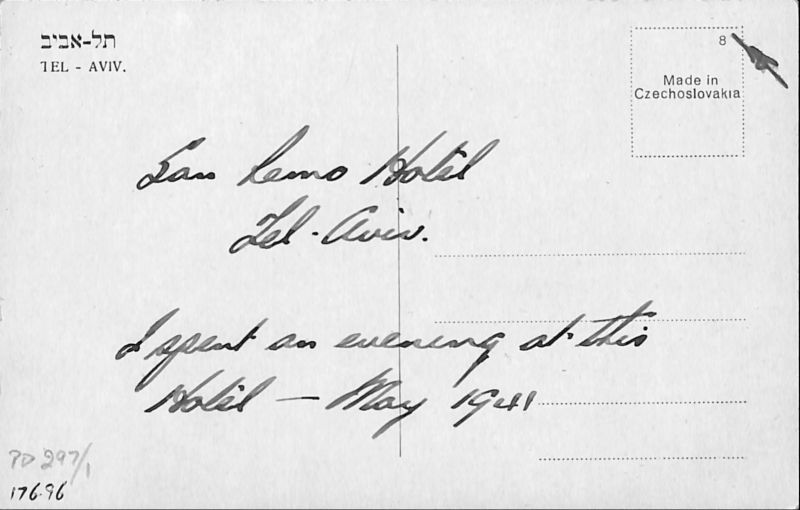 תל-אביב
TEL - AVIV.
8
Made in
Czechoslovakia
San Remo Hotel
Tel-Aviv.
I spent an evening at this
Hotel — May 1941
PD 297/1
176.96